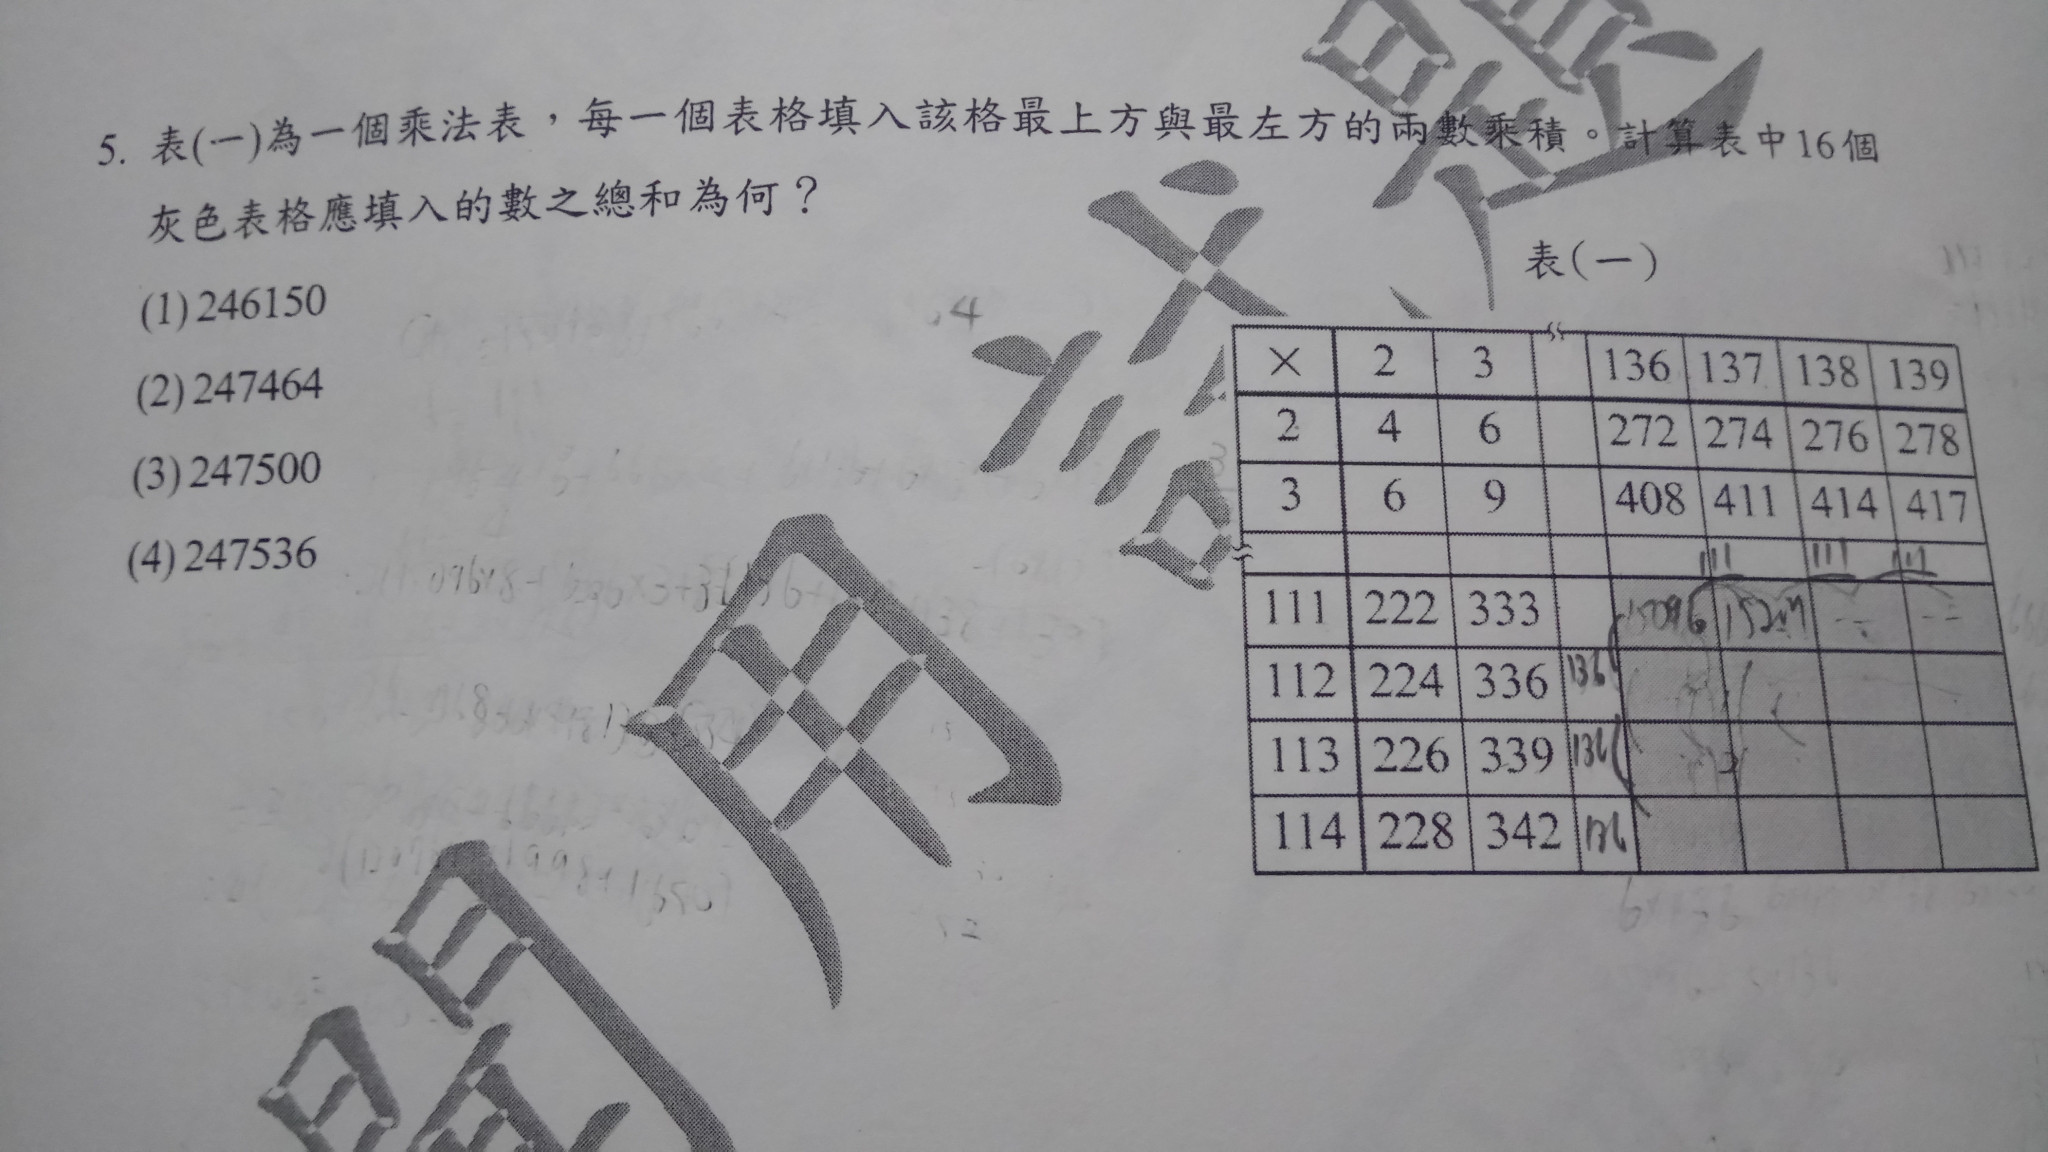 5. 表(一)為一個乘法表，每一個表格填入該格最上方與最左方的兩數乘積。計算表中16個
灰色表格應填入的數之總和為何？
(1) 246150
(2) 247464
(3) 247500
(4) 247536
表(一)
× 2 3 136 137 138 139
2 4 6 272 274 276 278
3 6 9 408 411 414 417
111 111 111
111 222 333 15096
112 224 336 136
113 226 339 136
114 228 342 136